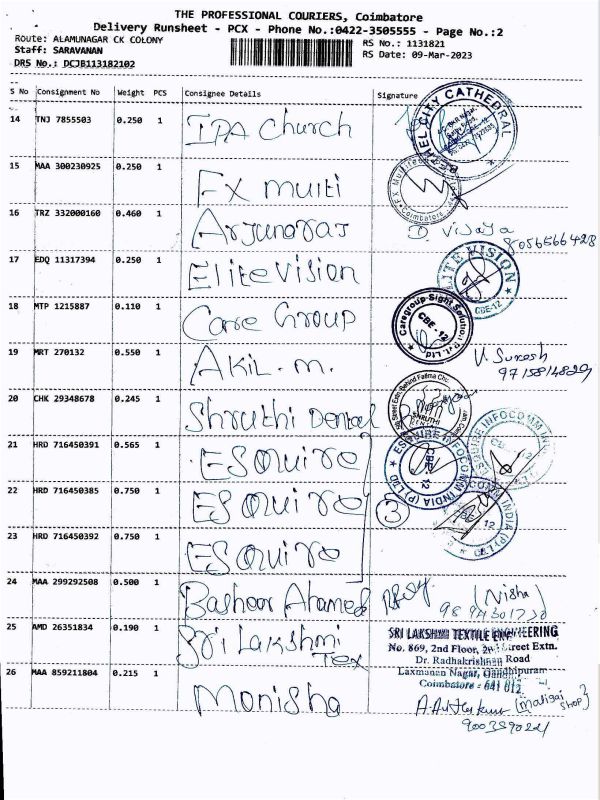 THE PROFESSIONAL COURIERS, Coimbatore
Delivery Runsheet - PCX - Phone No.:0422-3505555 - Page No.:2
Route: ALAMUNAGAR CK COLONY
RS No.: 1131821
Staff: SARAVANAN
RS Date: 09-Mar-2023
DRS No.: DCJB113182102
S No Consignment No Weight PCS Consignee Details Signature
14 TNJ 7855503 0.250 1 IPA Church
BETHEL CITY CATHEDRAL
15 MAA 300230925 0.250 1 FX multi
Coimbatore
16 TRZ 332000160 0.460 1 Arjunaraj D. Vijaya
8056566428
17 EDQ 11317394 0.250 1 Elite Vision
ELITE VISION
CBE-12
18 MTP 1215887 0.110 1 Care Group
Caregroup Sight Solution Pvt. Ltd
CBE - 12
19 MRT 270132 0.550 1 AKIL. M. V. Suresh
9715814829
20 CHK 29348678 0.245 1 Shruthi Dental
SHRUTHI
21 HRD 716450391 0.565 1 ESquire
ESQUIRE INFOCOMM INDIA (P) LTD
CBE-12
22 HRD 716450385 0.750 1 ESquire 3
23 HRD 716450392 0.750 1 ESquire
24 MAA 299292508 0.500 1 Basheer Ahamed (Nisha)
25 AMD 26351834 0.190 1 Sri Lakshmi Tex
SRI LAKSHMI TEXTILE ENGINEERING
No. 869, 2nd Floor, Street Extn.
Dr. Radhakrishnan Road
Laxmanan Nagar, Gandhipuram
Coimbatore - 641 012
26 MAA 859211804 0.215 1 Monisha
(Maligai Shop)